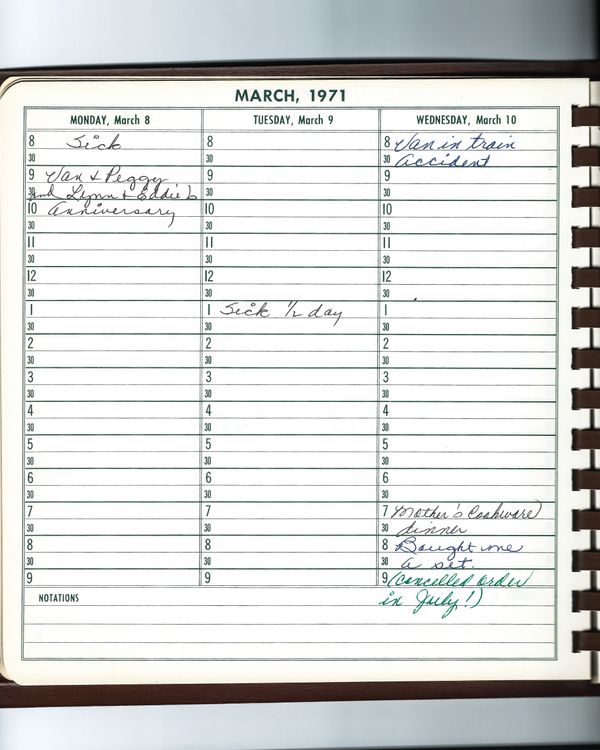 MARCH, 1971
MONDAY, March 8
8 Sick
30
9 Van & Peggy
30 and Lynn & Eddie's
10 Anniversary
30
11
30
12
30
1
30
2
30
3
30
4
30
5
30
6
30
7
30
8
30
9
TUESDAY, March 9
8
30
9
30
10
30
11
30
12
30
1 Sick 1/2 day
30
2
30
3
30
4
30
5
30
6
30
7
30
8
30
9
WEDNESDAY, March 10
8 Van in train
30 accident
9
30
10
30
11
30
12
30
1
30
2
30
3
30
4
30
5
30
6
30
7 Mother's Cookware
30 dinner
8 Bought me
30 a set.
9 (Cancelled order
in July!)
NOTATIONS